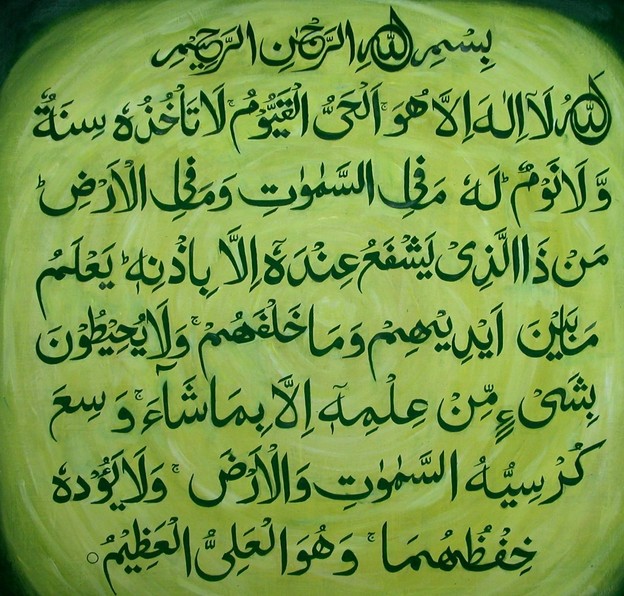 بِسْمِ اللهِ الرَّحْمٰنِ الرَّحِيْمِ
اَللهُ لَآ اِلٰهَ اِلَّا هُوَ ۚ اَلْحَیُّ الْقَيُّوْمُ ۚ لَا تَاْخُذُهٗ سِنَةٌ
وَّلَا نَوْمٌ ؕ لَهٗ مَا فِی السَّمٰوٰتِ وَمَا فِی الْاَرْضِ ؕ
مَنْ ذَا الَّذِیْ يَشْفَعُ عِنْدَهٗٓ اِلَّا بِاِذْنِهٖ ؕ يَعْلَمُ
مَا بَيْنَ اَيْدِيْهِمْ وَمَا خَلْفَهُمْ ۚ وَلَا يُحِيْطُوْنَ
بِشَیْءٍ مِّنْ عِلْمِهٖٓ اِلَّا بِمَا شَآءَ ۚ وَسِعَ
كُرْسِيُّهُ السَّمٰوٰتِ وَالْاَرْضَ ۚ وَلَا يَئُوْدُهٗ
حِفْظُهُمَا ۚ وَهُوَ الْعَلِیُّ الْعَظِيْمُ ○